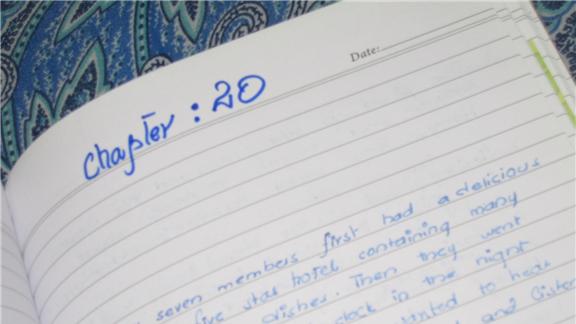 Date:
Chapter : 20
seven members first had a delicious
five star hotel containing many
dishes. Then they went
clock in the night
wanted to hear
and listen